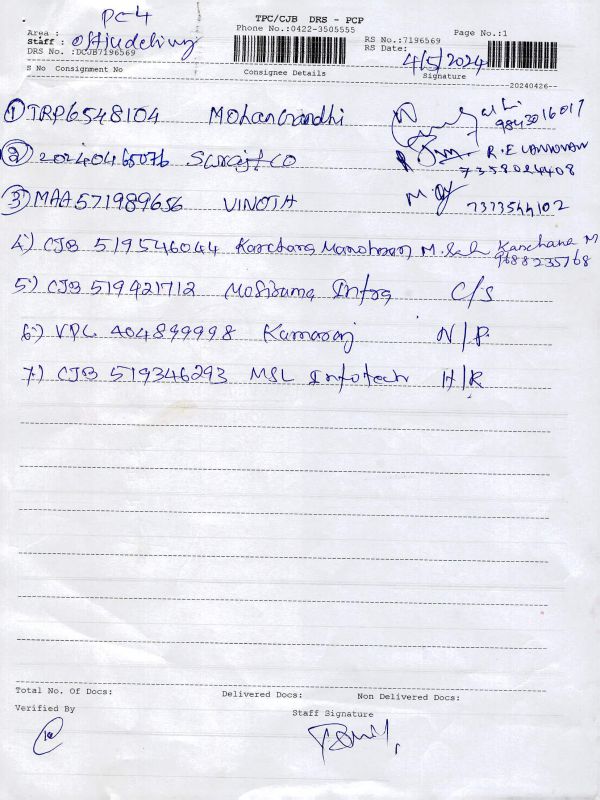 PC4
TPC/CJB DRS - PCP
Phone No.:0422-3505555
Area :
Staff :
DRS No. :DCJB7196569
RS No.:7196569
RS Date: 4/5/2024
Page No.:1
S No Consignment No Consignee Details Signature
20240426--
1 TRP6548104 MohanGandhi 9843016017
2 20240465076 Suraj & CO R.ELANGOVAN
7358024408
3 MAA571989656 VINOTH 7373544102
4) CJB 519546044 Kanchana Manoharan Kanchana M
9688235768
5) CJB 519921712 Infra C/S
6) VPL 404899998 Kamaraj N/P
7) CJB 519346293 MSL Infotech H/R
Total No. Of Docs: Delivered Docs: Non Delivered Docs:
Verified By Staff Signature